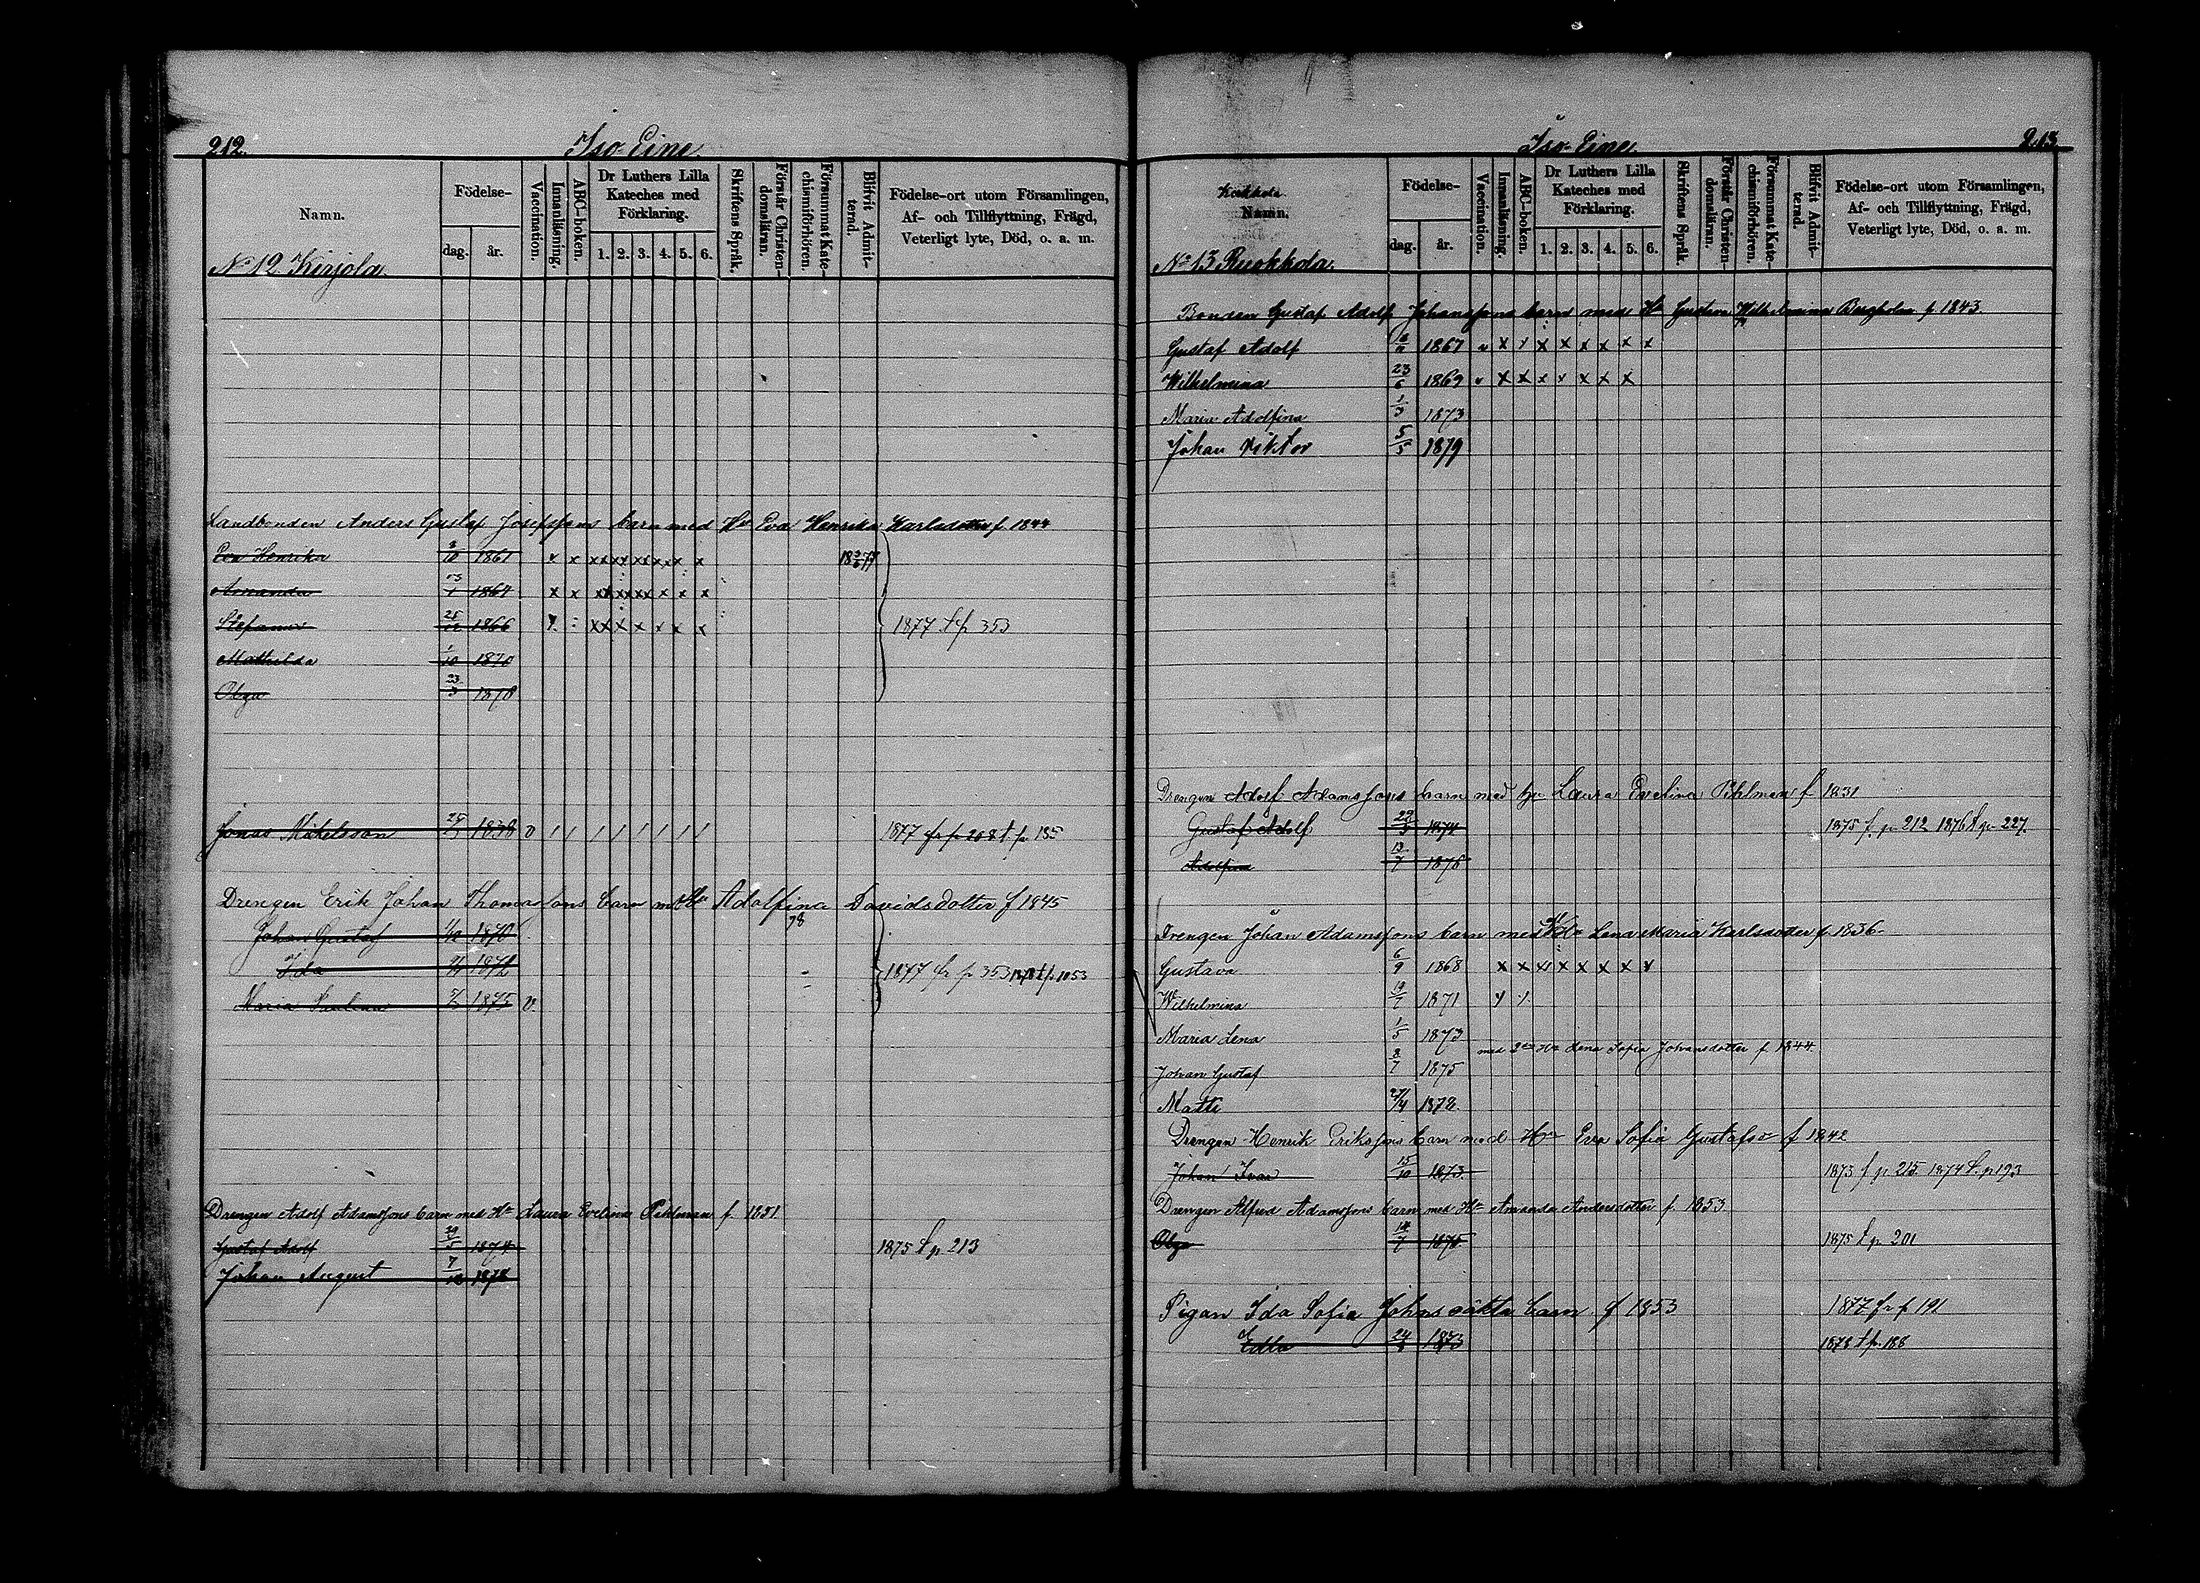 212. Iso-Eine.
Namn.
Födelse-
dag. år.
Vaccination.
Innanläsning.
ABC-boken.
Dr Luthers Lilla Kateches med Förklaring.
1. 2. 3. 4. 5. 6.
Skriftens Språk.
Förstår Christendomsläran.
Försummat Katechismiförhören.
Blifvit Admitterad.
Födelse-ort utom Församlingen,
Af- och Tillflyttning, Frägd,
Veterligt lyte, Död, o. a. m.
No 12 Kirjola
Landbonden Anders Gustaf Josefssons barn med Hu Eva Henrika Karlsdotter f. 1844
Eva Henrika 1861
Amanda 1864
Stefanus 1866 1877 t p 353
Mathilda 1/10 1870
Olga 23/3
Jonas Mikelsson 1838 v 1877 fr p 208 t. p. 185
Drengen Erik Johan Thomassons barn m Hu Adolfina Davidsdotter f 1845
78
Johan Gustaf 1870
Ida 1872 1877 fr p 353
Maria Paulina 1875 v.
Drengen Adolf Adamssons barn med Hu Laura Evelina Pihlman f. 1851
Gustaf Adolf 29/5 1874 1875 t p 213
Johan August 1878
Iso-Eine. 213.
Ruokkola
Namn.
Födelse-
dag. år.
Vaccination.
Innanläsning.
ABC-boken.
Dr Luthers Lilla Kateches med Förklaring.
1. 2. 3. 4. 5. 6.
Skriftens Språk.
Förstår Christendomsläran.
Försummat Katechismiförhören.
Blifvit Admitterad.
Födelse-ort utom Församlingen,
Af- och Tillflyttning, Frägd,
Veterligt lyte, Död, o. a. m.
No 13 Ruokkola.
Bonden Gustaf Adolf Johanssons barn med Hu Gustava Wilhelmina Bergholm f 1843
Gustaf Adolf 1867 v x x x x x x x x
Wilhelmina 23/6 1869 v x x x x x x x
Maria Adolfina 1/3 1873
Johan Viktor 5/5 1879
Drengen Adolf Adamssons barn med hu Laura Evelina Pihlman f 1851
Gustaf Adolf 29/5 1874 1875 f. p 212 1876 t p 227.
Adolfina 13/7 1876
Drengen Johan Adamssons barn med Hu Lena Maria Karlsdotter f. 1836
Gustava 6/9 1868 x x x x x x x x
Wilhelmina 19/7 1871
Maria Lena 1/5 1873
med 2dra Hu Lena Sofia Johansdotter f. 1844.
Johan Gustaf 8/7 1875
Matti 27/4 1878.
Drengen Henrik Erikssons barn med Hu Eva Sofia Gustafsd f 1842
Johan Ivar 15/10 1873. 1873 f p 215. 1874 t. p 193
Drengen Alfred Adamssons barn med Hu Amanda Andersdotter f. 1853
Olga 14/7 1875 1875 t p 201
Pigan Ida Sofia Johns oäkta barn f 1853 1877 fr p 191
Edla 1873 1878 t p. 188